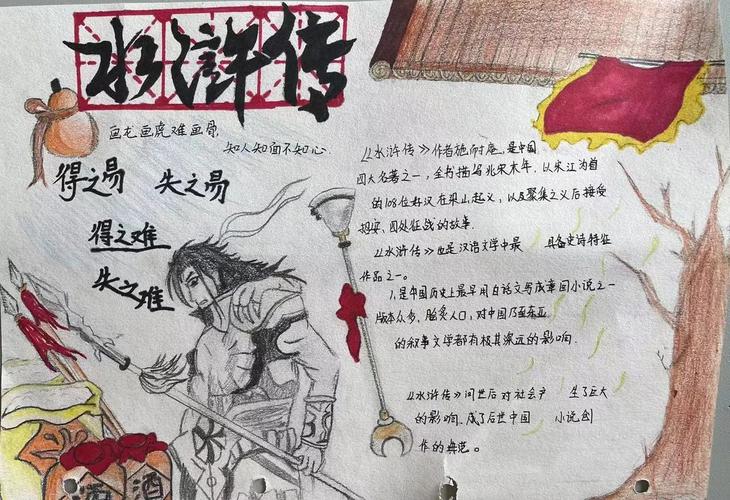 水浒传
画龙画虎难画骨,
知人知面不知心.
得之易 失之易
得之难
失之难
《水浒传》作者施耐庵.是中国
四大名著之一,全书描写北宋末年,以宋江为首
的108位好汉在梁山起义,以及聚集之义后接受
招安,四处征战的故事.
《水浒传》也是汉语文学中最 具备史诗特征
作品之一。
1,是中国历史上最早用白话文写成章回小说之一
版本众多,脍炙人口,对中国乃至东亚
的叙事文学都有极其深远的影响.
《水浒传》问世后对社会产 生了巨大
的影响.成了后世中国 小说创
作的典范。
酒
酒